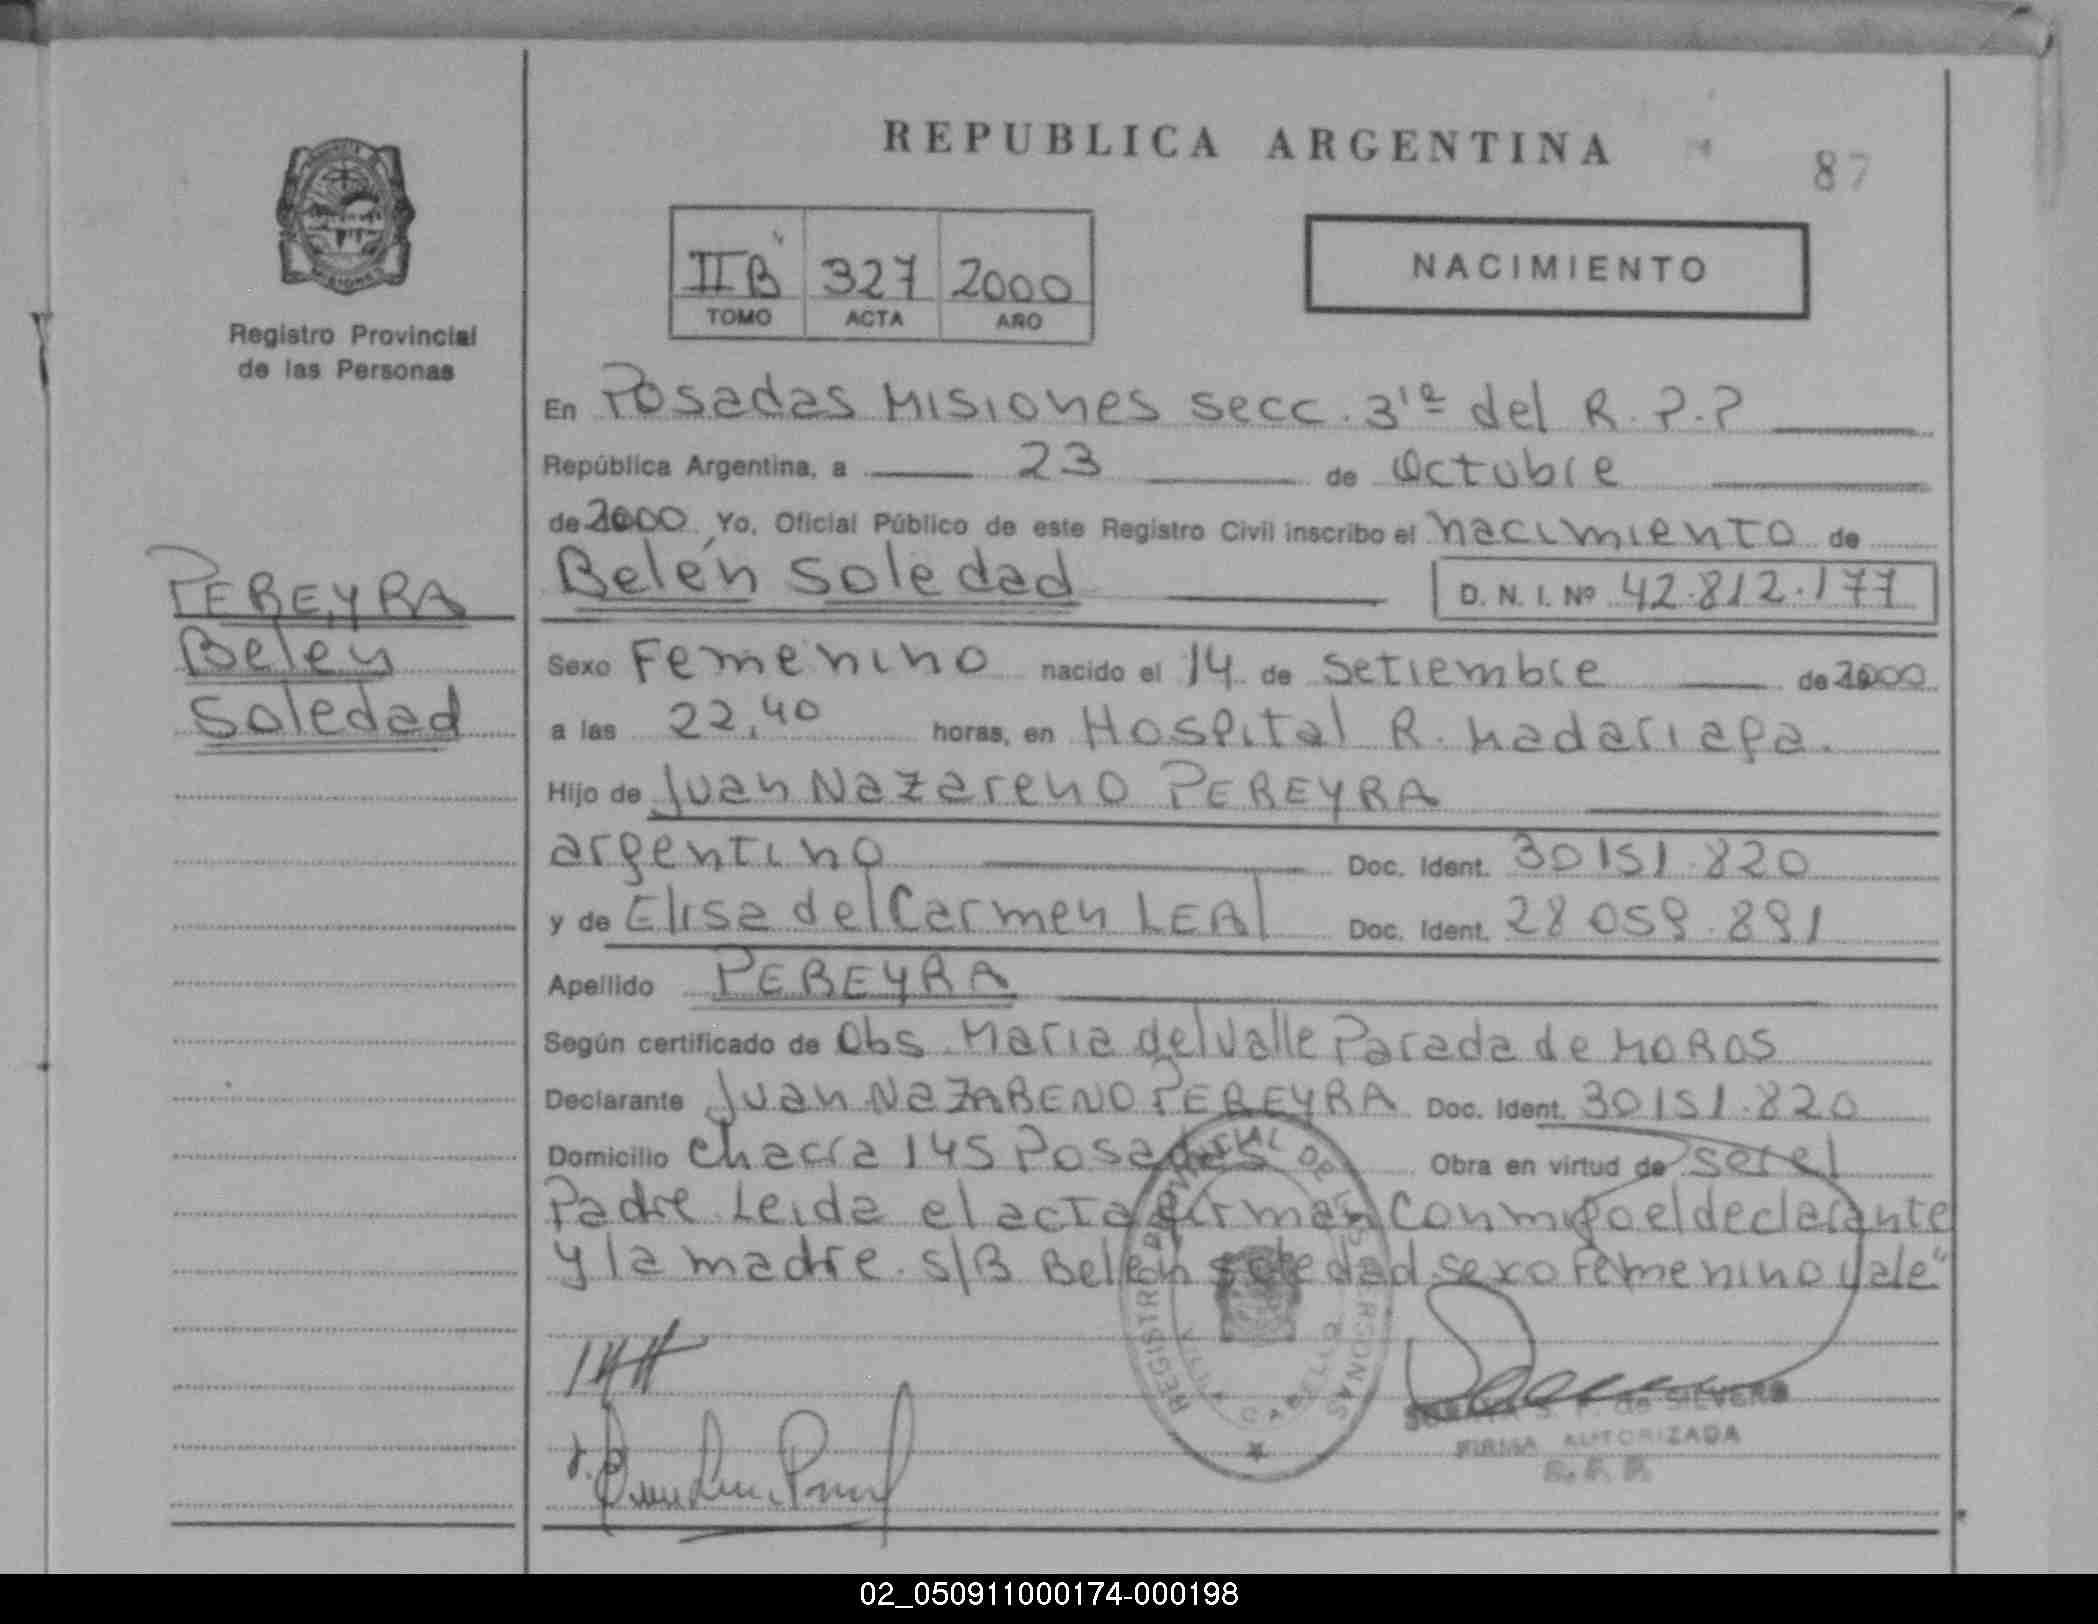 REPUBLICA ARGENTINA
87
IIB 327 2000
TOMO ACTA AÑO
NACIMIENTO
Registro Provincial
de las Personas
PEREYRA
Belen
Soledad
En Posadas Misiones secc. 3ra del R.P.P
República Argentina, a 23 de Octubre
de 2000 Yo, Oficial Público de este Registro Civil inscribo el nacimiento de
Belén Soledad D. N. I. Nº 42.812.177
Sexo Femenino nacido el 14 de Setiembre de 2000
a las 22,40 horas, en Hospital R. Madariaga.
Hijo de Juan Nazareno PEREYRA
argentino Doc. Ident. 30151.820
y de Elisa del Carmen LEAl Doc. Ident. 28 059.891
Apellido PEREYRA
Según certificado de Obs. Maria del Valle Parada de MOROS
Declarante Juan NAZARENO PEREYRA Doc. Ident. 30151.820
Domicilio Chacra 145 Posadas Obra en virtud de ser el
Padre. Leida el acta firman conmigo el declarante
y la madre. S/B Belén Soledad sexo Femenino vale"
REGISTRO PROVINCIAL DE LAS PERSONAS
VILLA CABELLO
S. F. de SIEVERS
FIRMA AUTORIZADA
R. P. P.
02_050911000174-000198